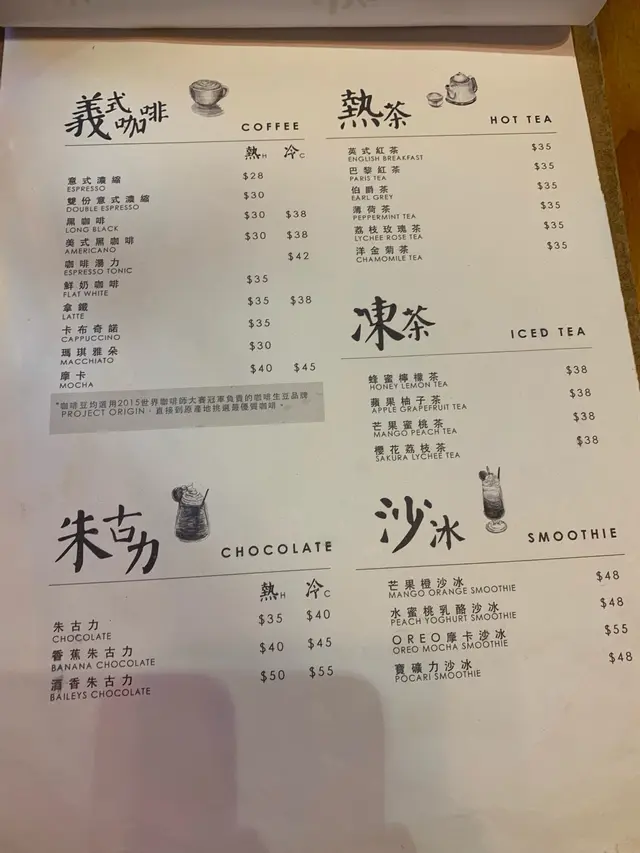 義式咖啡
COFFEE
熱H 冷C
意式濃縮 $28
ESPRESSO
雙份意式濃縮 $30
DOUBLE ESPRESSO
黑咖啡 $30 $38
LONG BLACK
美式黑咖啡 $30 $38
AMERICANO
咖啡湯力 $42
ESPRESSO TONIC
鮮奶咖啡 $35
FLAT WHITE
拿鐵 $35 $38
LATTE
卡布奇諾 $35
CAPPUCCINO
瑪琪雅朵 $30
MACCHIATO
摩卡 $40 $45
MOCHA
*咖啡豆均選用2015世界咖啡師大賽冠軍負責的咖啡生豆品牌
PROJECT ORIGIN，直接到原產地挑選最優質咖啡。
熱茶
HOT TEA
英式紅茶 $35
ENGLISH BREAKFAST
巴黎紅茶 $35
PARIS TEA
伯爵茶 $35
EARL GREY
薄荷茶 $35
PEPPERMINT TEA
荔枝玫瑰茶 $35
LYCHEE ROSE TEA
洋金菊茶 $35
CHAMOMILE TEA
凍茶
ICED TEA
蜂蜜檸檬茶 $38
HONEY LEMON TEA
蘋果柚子茶 $38
APPLE GRAPEFRUIT TEA
芒果蜜桃茶 $38
MANGO PEACH TEA
櫻花荔枝茶 $38
SAKURA LYCHEE TEA
朱古力
CHOCOLATE
熱H 冷C
朱古力 $35 $40
CHOCOLATE
香蕉朱古力 $40 $45
BANANA CHOCOLATE
酒香朱古力 $50 $55
BAILEYS CHOCOLATE
沙冰
SMOOTHIE
芒果橙沙冰 $48
MANGO ORANGE SMOOTHIE
水蜜桃乳酪沙冰 $48
PEACH YOGHURT SMOOTHIE
OREO摩卡沙冰 $55
OREO MOCHA SMOOTHIE
寶礦力沙冰 $48
POCARI SMOOTHIE